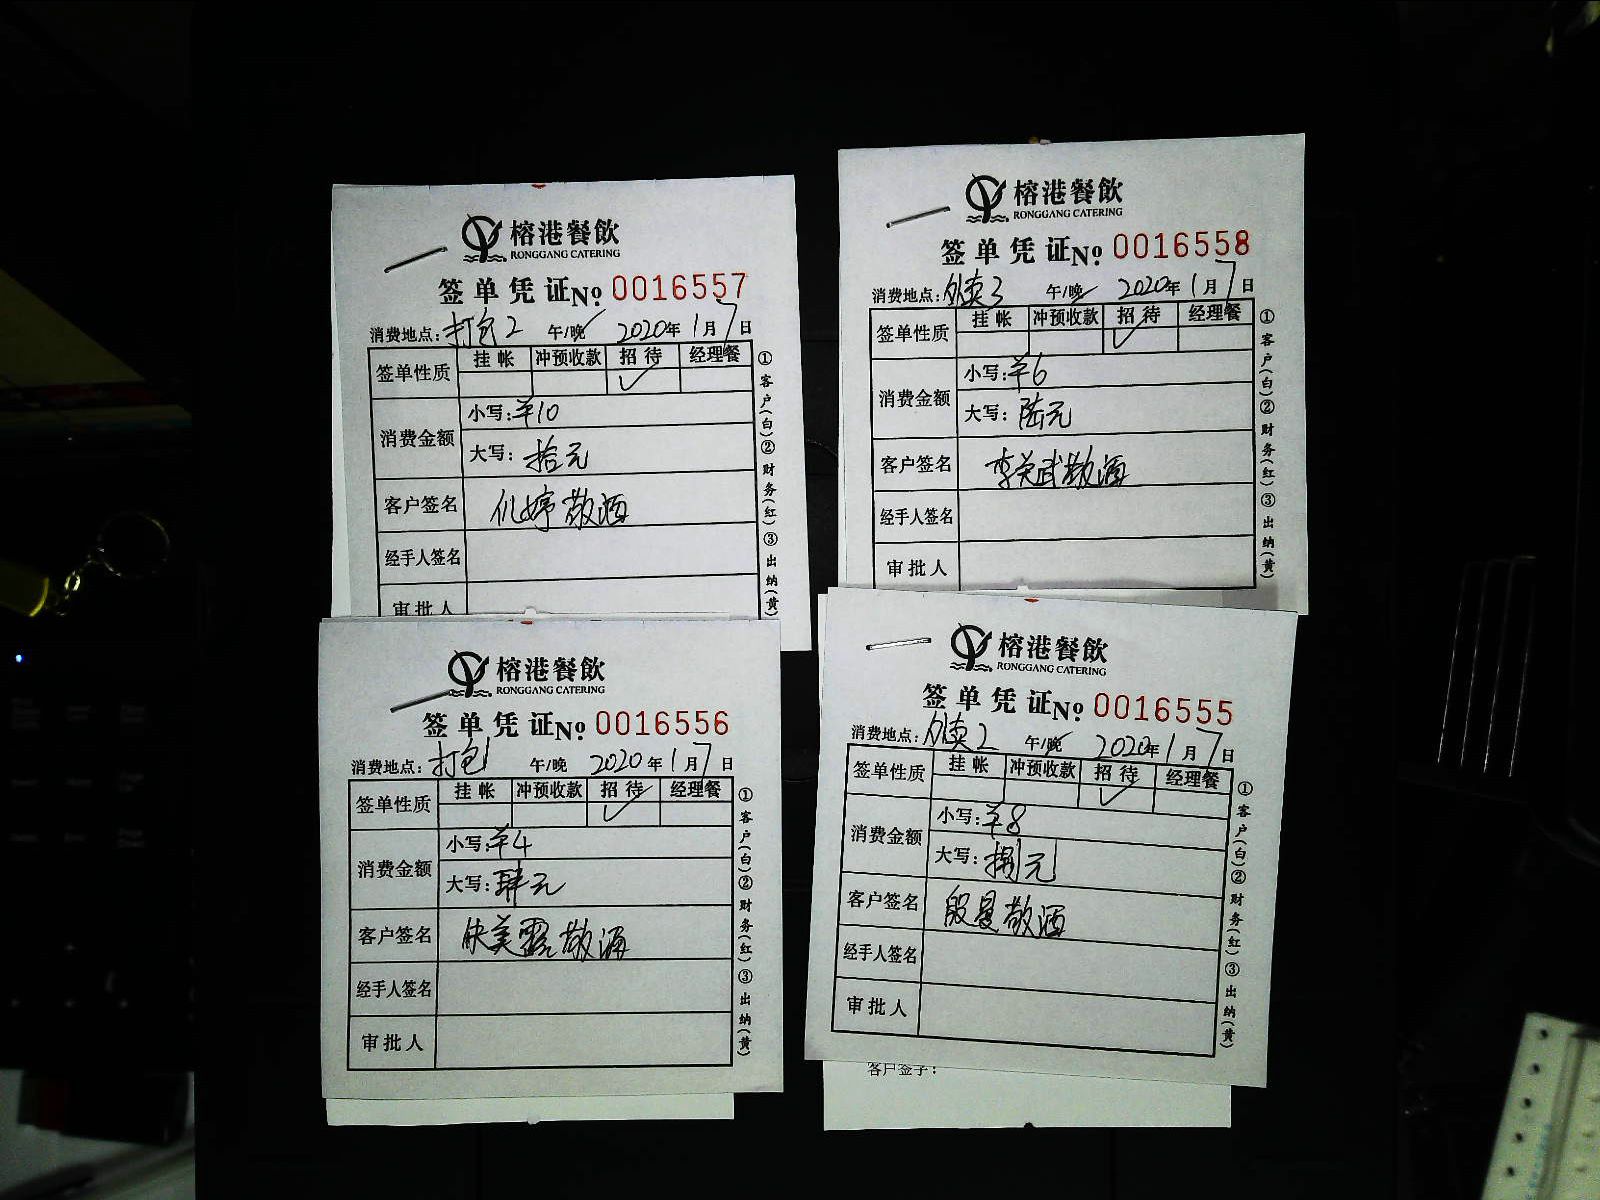 榕港餐飲
RONGGANG CATERING
签单凭证No 0016557
消费地点:打包2 午/晚 2020年1月7日
签单性质 挂帐 冲预收款 招待 经理餐
消费金额
小写:¥10
大写:拾元
客户签名 婷敬酒
经手人签名
审批人
①客户(白)②财务(红)③出纳(黄)
榕港餐飲
RONGGANG CATERING
签单凭证No 0016558
消费地点:外卖3 午/晚 2020年1月7日
签单性质 挂帐 冲预收款 招待 经理餐
消费金额
小写:¥6
大写:陆元
客户签名 李荣武敬酒
经手人签名
审批人
①客户(白)②财务(红)③出纳(黄)
榕港餐飲
RONGGANG CATERING
签单凭证No 0016556
消费地点:打包1 午/晚 2020年1月7日
签单性质 挂帐 冲预收款 招待 经理餐
消费金额
小写:¥4
大写:肆元
客户签名 美露敬酒
经手人签名
审批人
①客户(白)②财务(红)③出纳(黄)
榕港餐飲
RONGGANG CATERING
签单凭证No 0016555
消费地点:外卖2 午/晚 2020年1月7日
签单性质 挂帐 冲预收款 招待 经理餐
消费金额
小写:¥8
大写:捌元
客户签名 殷曼敬酒
经手人签名
审批人
①客户(白)②财务(红)③出纳(黄)
客户签字: